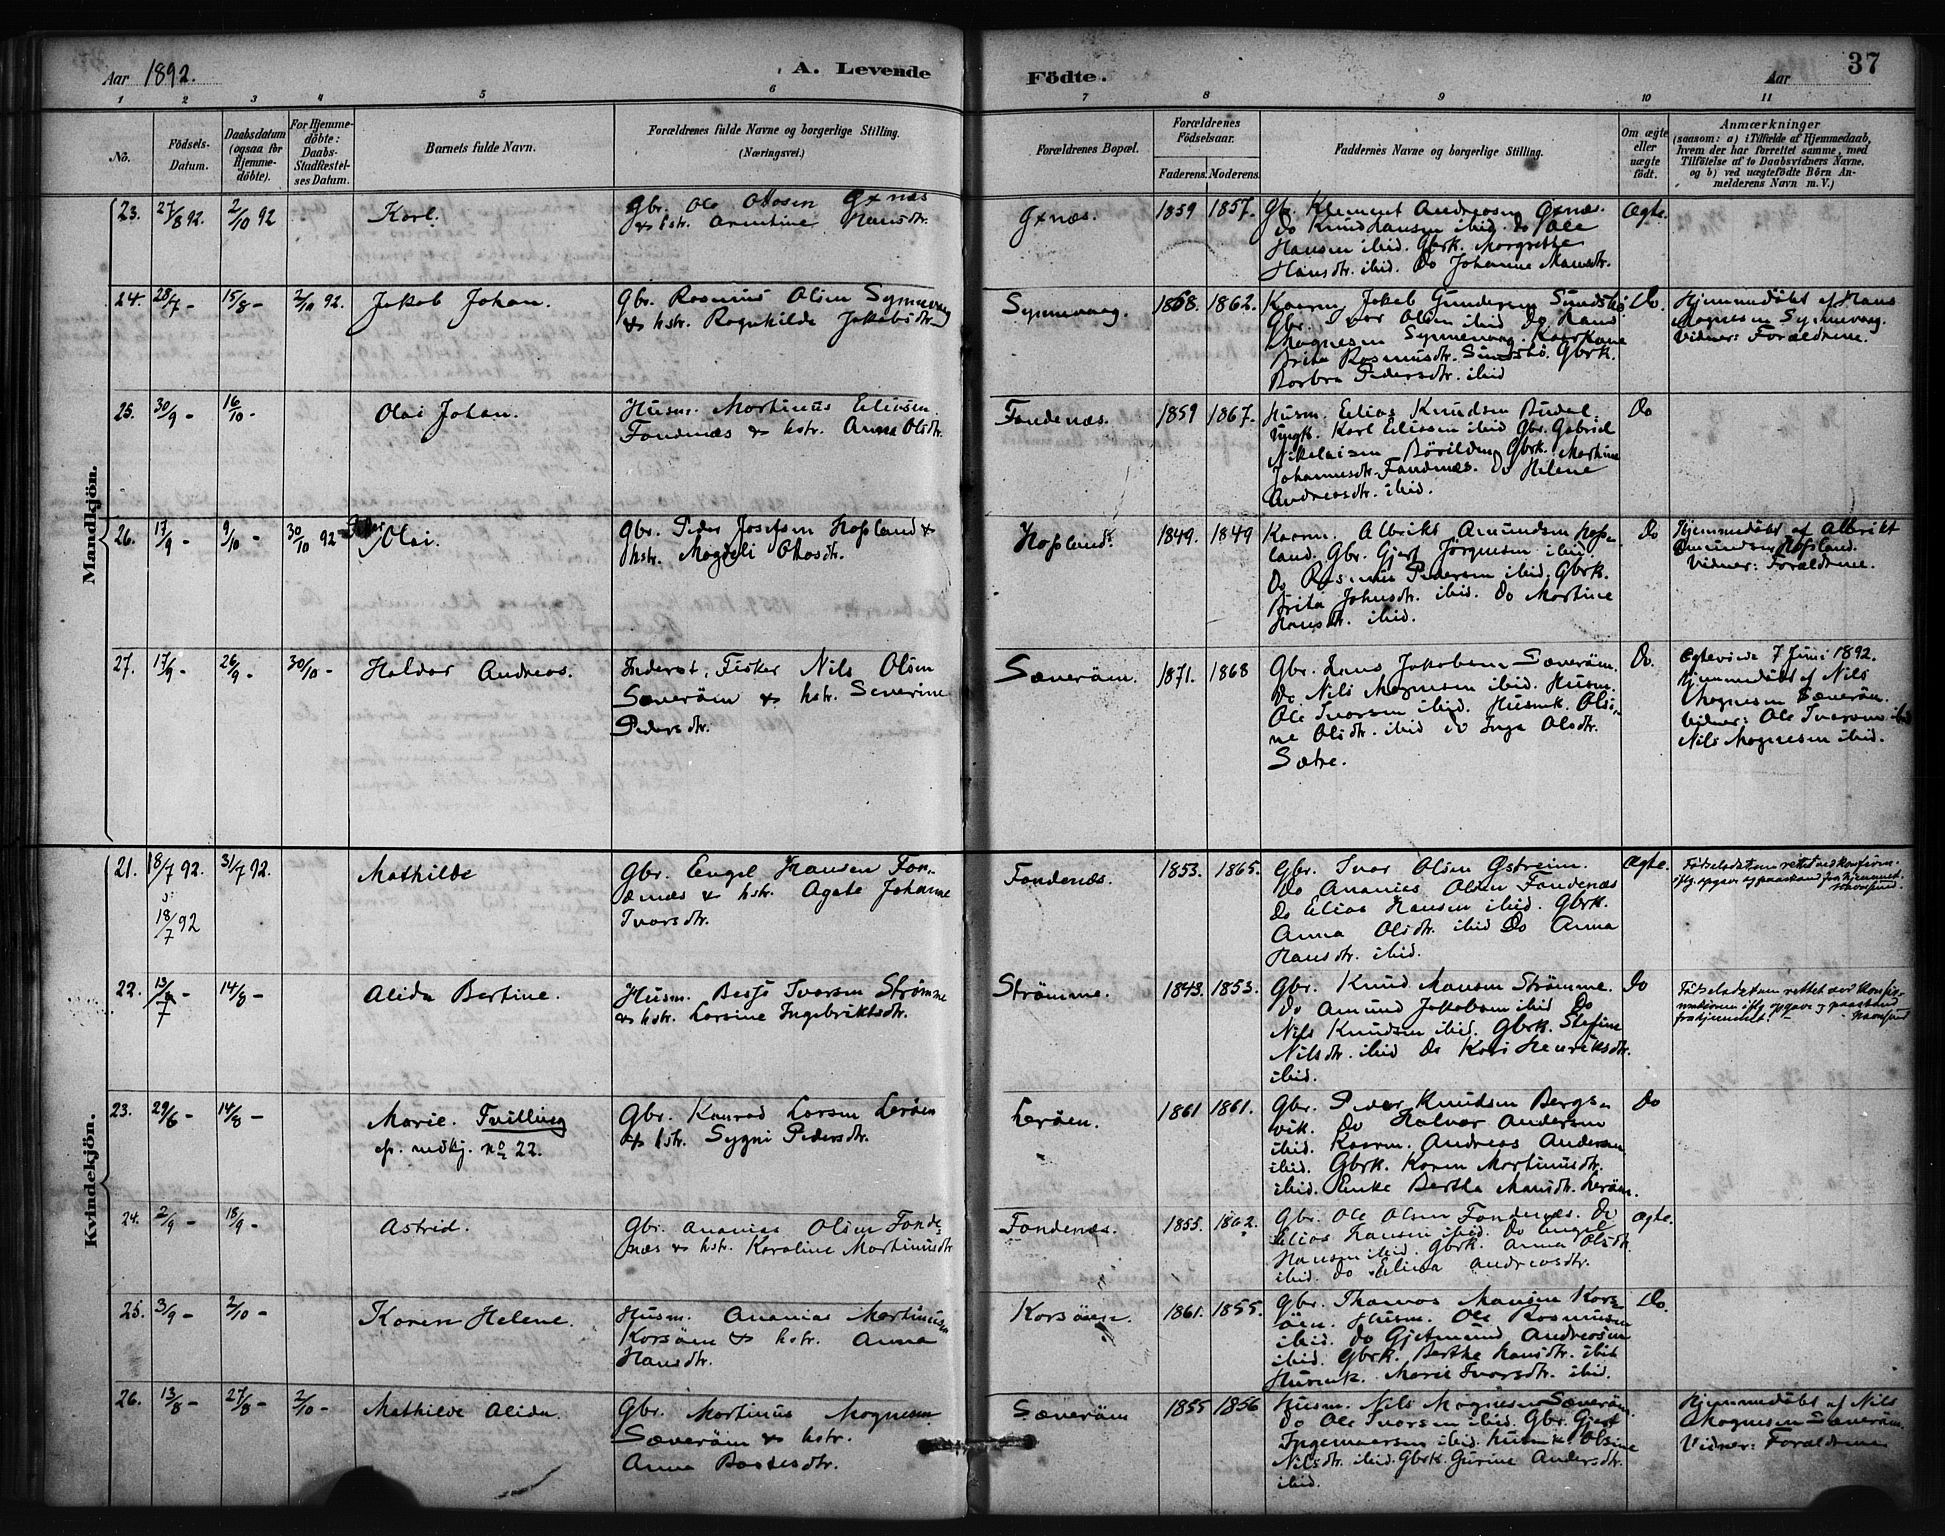 Aar 1892.
A. Levende
Födte.
Aar
37
1 2 3 4 5 6 7 8 9 10 11
No.
Födsels-
Datum.
Daabsdatum
(ogsaa for
Hjemme-
döbte).
For Hjemme-
döbte:
Daabs-
Stadfæstel-
ses Datum.
Barnets fulde Navn.
Forældrenes fulde Navne og borgerlige Stilling.
(Næringsvei.)
Forældrenes Bopæl.
Forældrenes
Födselsaar.
Faderens. Moderens.
Faddernes Navne og borgerlige Stilling.
Om ægte
eller
uægte
födt.
Anmærkninger
(saasom: a) i Tilfælde af Hjemmedaab,
hvem der har forrettet samme, med
Tilföielse af to Daabsvidners Navne,
og b) ved uægtefödte Börn An-
melderens Navn m. V.)
Mandkjön.
23. 27/8 92. 2/10 92 Karl.
Gbr. Ole Olosen Gxnæs
& hstr. Hansdtr.
Gxnæs. 1859 1857.
Gbr. Klement Andreasen Gxnæs.
Do Knud Hansen ibid. Do Ole
Hansen ibid. Gbrk. Margrethe
Hansdtr. ibid. Do Johanne Mansdtr.
Ægte.
24. 28/7 - 15/8 - 2/10 92. Jakob Johan.
Gbr. Rasmus Olsen Synnevaag
& hstr. Ragnhilde Jakobsdtr.
Synnevaag. 1868. 1862.
Kaarm. Jakob Gundersen Sundsbö
Gbr. Ivar Olsen ibid Do Hans
Magnesen Synnevaag. Kaarkone
Brita Rasmusdtr. Sundsbö. Gbrk.
Barbra Pedersdtr. ibid
Do.
Hjemmedöbt af Hans
Magnesen Synnevaag.
Vidner: Forældrene.
25. 30/9 - 16/10 - Olai Johan.
Husm. Martinus Eliasen
Fondenæs & hstr. Anna Olsdtr.
Fondenæs. 1859 1867.
Husm. Elias Knudsen Budal.
Ungk. Karl Eliasen ibid Gbr. Gabriel
Nikolaisen Bövilden Gbrk. Martine
Johannesdtr. Fondenæs. Do Helene
Andreasdtr. ibid.
Do
26. 17/9 - 9/10 - 30/10 92 Olai.
Gbr. Peder Josefsen Hopland &
hstr. Magdeli Olasdtr.
Hopland. 1849. 1849
Kaarm. Albrikt Amundsen Hop-
land. Gbr. Gjert Jörgnesen ibid.
Do Rasmus Pedersen ibid. Gbrk.
Brita Johnsdtr. ibid. Do Martine
Hansdtr. ibid.
Do
Hjemmedöbt af Albrikt
Amundsen Hopland.
Vidner: Forældrene.
27. 17/9 - 26/9 - 30/10 - Haldor Andreas.
Inderst, Fisker Nils Olsen
Sæveröen & hstr. Severine
Pedersdtr.
Sæveröen. 1871. 1868
Gbr. Hans Jakobsen Sæveröen.
Do Nils Magnesen ibid. Husm.
Ole Ivarsen ibid. Husmk. Olsi-
ne Olsdtr. ibid Do Inga Olsdtr.
Sætre.
Do.
Ægteviede 7 Juni 1892.
Hjemmedöbt af Nils
Magnesen Sæveröen.
Vidner: Ole Ivarsen ibid
Nils Magnesen ibid.
Kvindekjön.
21. 18/7 92. 31/7 92. Mathilde
ɔ:
18/7 92
Gbr. Engel Hansen Fon-
denæs & hstr. Agate Johanne
Ivarsdtr.
Fondenæs. 1853. 1865.
Gbr. Ivar Olsen Östreim.
Do Ananias Olsen Fondenæs
Do Elias Hansen ibid. Gbrk.
Anna Olsdtr. ibid Do Anna
Hansdtr. ibid.
Ægte.
Födselsdatum rettet ved konfirm.
iflg. opgave og paastand fra hjemmet.
22. 13/7 - 14/8 - Alida Bertine.
Husm. Ivarsen Strömme
& hstr. Larsine Ingebriktsdtr.
Strömme. 1843. 1853.
Gbr. Knud Mansen Strömme.
Do Amund Jakobsen ibid Do
Nils Knudsen ibid. Gbrk. Stefine
Nilsdtr. ibid Do Kari Henriksdtr.
ibid.
Do
Födselsdatum rettet ved konfir-
mationen iflg. opgave og paastand
fra hjemmet.
23. 29/6 - 14/8 - Marie. Tvilling
cfr. mdkj. no 22.
Gbr. Konrad Larsen Leröen
& hstr. Sygni Pedersdtr.
Leröen. 1861 1861.
Gbr. Peder Knudsen Bergs-
vik. Do Halvor Andersen
ibid. Kaarm. Andreas Andersen
ibid. Gbrk. Karen Martinusdtr.
ibid. Enke Bertha Mansdtr. Leröen.
Do
24. 2/9 - 18/9 - Astrid.
Gbr. Ananias Olsen Fonde-
næs & hstr. Karoline Martinusdtr
Fondenæs. 1855. 1862.
Gbr. Ole Olsen Fondenæs. Do
Elias Hansen ibid. Do Engel
Hansen ibid. Gbrk. Anna Olsdtr.
ibid. Do Elina Andreasdtr.
Ægte.
25. 3/9 - 2/10 - Karen Helene.
Husm. Ananias Martinusen
Korsöen & hstr. Anna
Hansdtr.
Korsöen. 1861. 1855.
Gbr. Thomas Monsen Kors-
öen. Husm. Ole Rasmusen
ibid. Do Gjetmund Andreasen
ibid. Gbrk. Berthe Hansdtr. ibid
Husmk. Marie Ivarsdtr. ibid.
Do.
26. 13/8 - 27/8 - 2/10 - Mathilde Alida.
Gbr. Martinus Magnesen
Sæveröen & hstr.
Anna Bastesdtr.
Sæveröen 1855 1856
Husm. Nils Magnesen Sæveröen.
Do Ole Ivarsen ibid. Gbr. Gjert
Ingemaarsen ibid. Husmk Olsine
Nilsdtr. ibid. Gbrk. Gurine Andersdtr.
ibid.
Hjemmedöbt af Nils
Magnesen Sæveröen.
Vidner: Forældrene